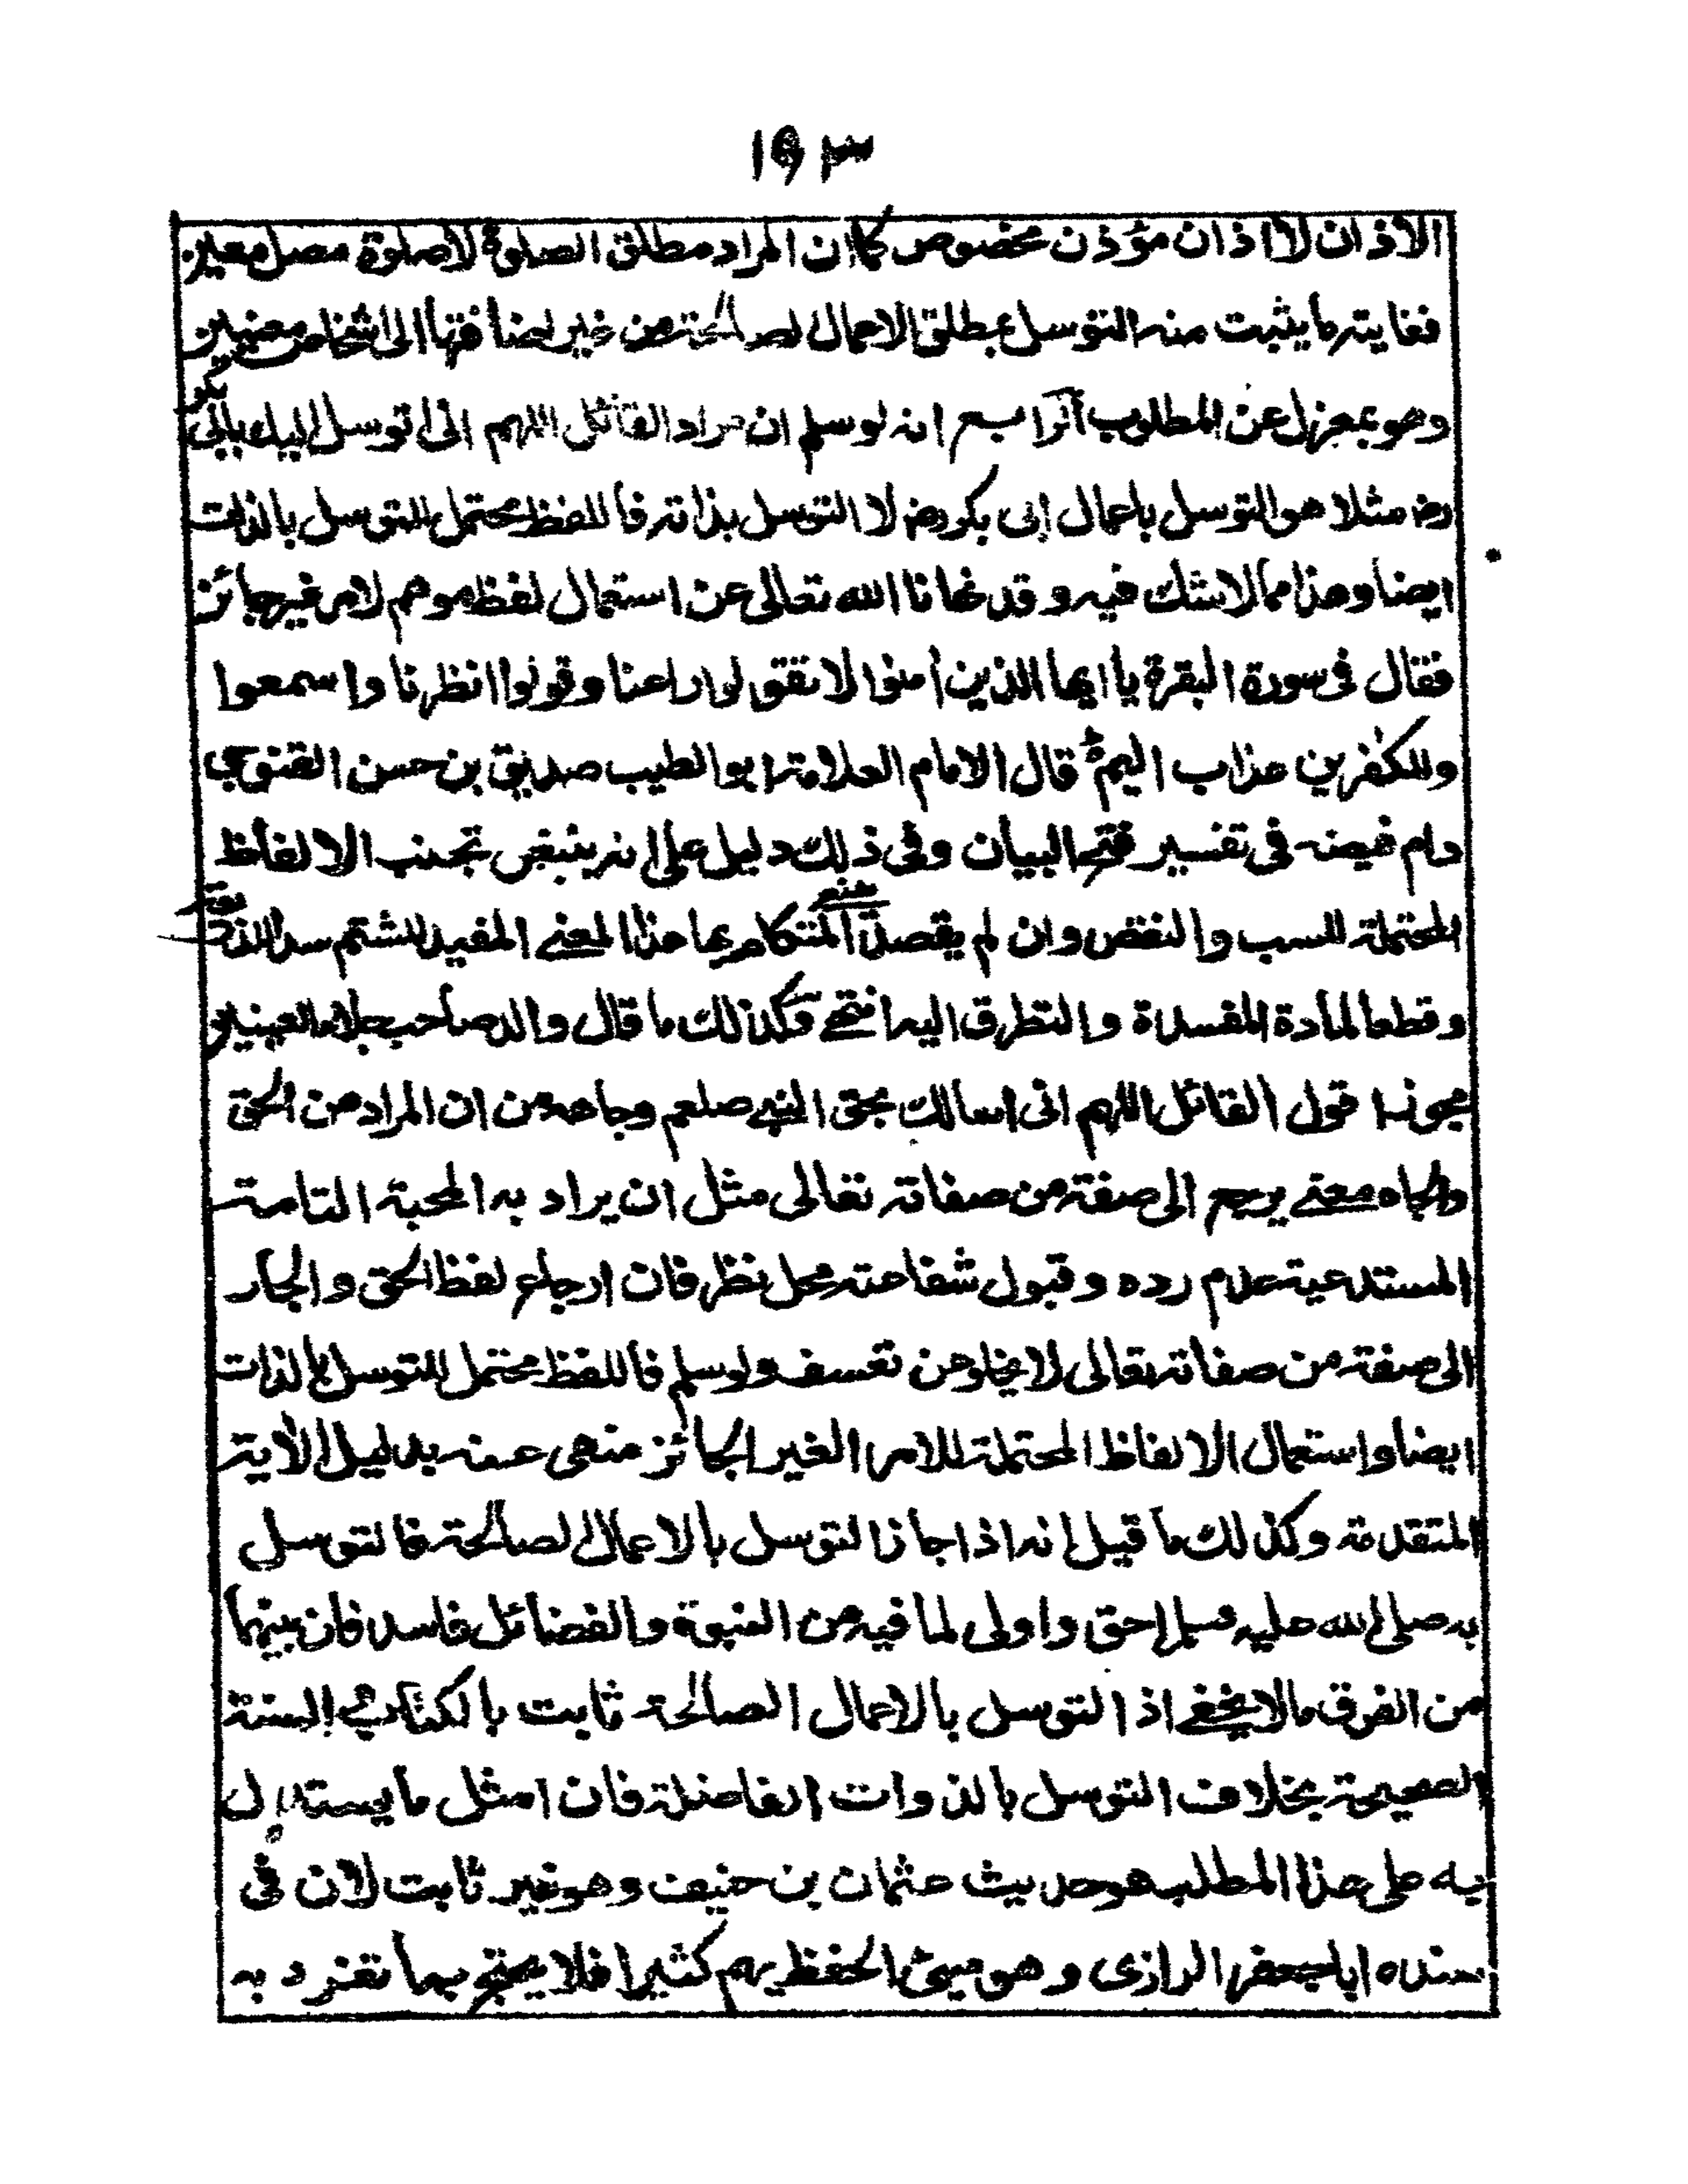 ١٩٣
الاذان لا اذان مؤذن مخصوص كما ان المراد مطلق الصلوة لا صلوة مصل معين
فغايته ما يثبت منه التوسل بمطلق الاعمال الصالحة من غير اضافتها الى اشخاص معينين
وهو بمعزل عن المطلوب الرابع انه لو سلم ان مراد القائل اللهم انى اتوسل اليك بابى بكر
رضـ مثلا هو التوسل باعمال ابى بكر رضـ لا التوسل بذاته فاللفظ محتمل للتوسل بالذات
ايضا وهذا مما لا شك فيه وقد نهانا الله تعالى عن استعمال لفظ موهم لامر غير جائز
فقال فى سورة البقرة يا ايها الذين اٰمنوا لا تقولوا راعنا وقولوا انظرنا واسمعوا
وللكٰفرين عذاب اليم قال الامام العلامة ابو الطيب صديق بن حسن القنوجي
دام فيضه فى تفسير فتح البيان وفى ذلك دليل على انه ينبغى تجنب الالفاظ
المحتملة للسب والنقص وان لم يقصد المتكلم بها هذا المعنى المفيد للشتم سدا للذريعة
وقطعا لمادة المفسدة والتطرق اليه انتهى وكذلك ما قال والد صاحب جلاء العينين
مجوزا قول القائل اللهم انى اسالك بحق النبى صلعم وجاهه من ان المراد من الحق
والجاه معنى يرجع الى صفة من صفاته تعالى مثل ان يراد به المحبة التامة
المستدعية عدم رده وقبول شفاعته محل نظر فان ارجاع لفظ الحق والجاه
الى صفة من صفاته تعالى لا يخلو من تعسف ولو سلم فاللفظ محتمل للتوسل بالذات
ايضا واستعمال الالفاظ المحتملة للامر الغير الجائز منهى عنه بدليل الاٰية
المتقدمة وكذلك ما قيل انه اذا جاز التوسل بالاعمال الصالحة فالتوسل
به صلى الله عليه وسلم احق واولى لما فيه من النبوة والفضائل فاسد فان بينهما
من الفرق ما لا يخفى اذ التوسل بالاعمال الصالحة ثابت بالكتاب والسنة
الصحيحة بخلاف التوسل بالذوات الفاضلة فان امثل ما يستدل
به على هذا المطلب هو حديث عثمان بن حنيف وهو غير ثابت لان فى
سنده ابا جعفر الرازى وهو سيئ الحفظ يهم كثيرا فلا يحتج بما تفرد به